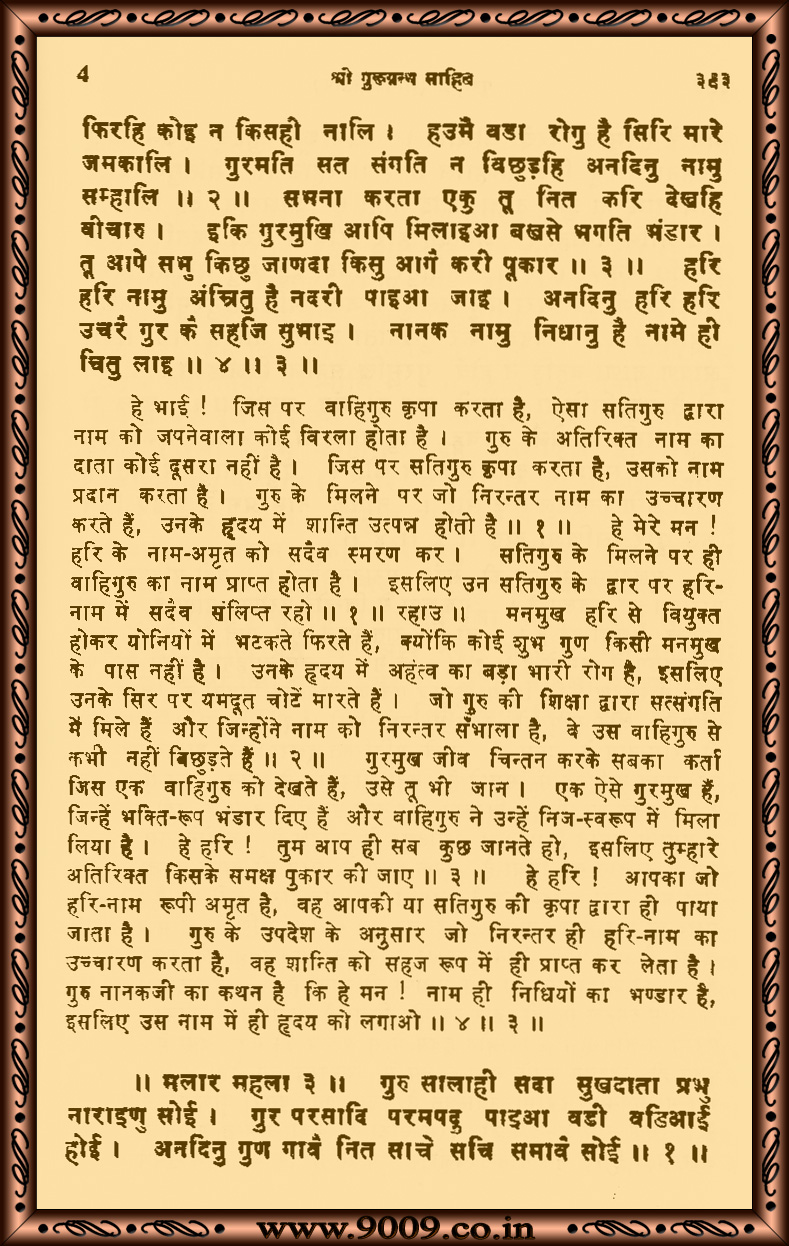 4 श्री गुरूग्रन्थ साहिब ३९३
फिरहि कोइ न किसही नालि । हउमै वडा रोगु है सिरि मारे
जमकालि । गुरमति सत संगति न विछुड़हि अनदिनु नामु
सम्हालि ॥ २ ॥ सभना करता एकु तू नित करि देखहि
वीचारु । इकि गुरमुखि आपि मिलाइआ बखसे भगति भंडार ।
तू आपे सभु किछु जाणदा किसु आगै करी पूकार ॥ ३ ॥ हरि
हरि नामु अंम्रितु है नदरी पाइआ जाइ । अनदिनु हरि हरि
उचरै गुर कै सहजि सुभाइ । नानक नामु निधानु है नामे ही
चितु लाइ ॥ ४ ॥ ३ ॥
हे भाई ! जिस पर वाहिगुरु कृपा करता है, ऐसा सतिगुरु द्वारा
नाम को जपनेवाला कोई विरला होता है । गुरु के अतिरिक्त नाम का
दाता कोई दूसरा नहीं है । जिस पर सतिगुरु कृपा करता है, उसको नाम
प्रदान करता है । गुरु के मिलने पर जो निरन्तर नाम का उच्चारण
करते हैं, उनके हृदय में शान्ति उत्पन्न होती है ॥ १ ॥ हे मेरे मन !
हरि के नाम-अमृत को सदैव स्मरण कर । सतिगुरु के मिलने पर ही
वाहिगुरु का नाम प्राप्त होता है । इसलिए उन सतिगुरु के द्वार पर हरि-
नाम में सदैव संलिप्त रहो ॥ १ ॥ रहाउ ॥ मनमुख हरि से वियुक्त
होकर योनियों में भटकते फिरते हैं, क्योंकि कोई शुभ गुण किसी मनमुख
के पास नहीं है । उनके हृदय में अहंत्व का बड़ा भारी रोग है, इसलिए
उनके सिर पर यमदूत चोटें मारते हैं । जो गुरु की शिक्षा द्वारा सत्संगति
में मिले हैं और जिन्होंने नाम को निरन्तर सँभाला है, वे उस वाहिगुरु से
कभी नहीं बिछुड़ते हैं ॥ २ ॥ गुरमुख जीव चिन्तन करके सबका कर्ता
जिस एक वाहिगुरु को देखते हैं, उसे तू भी जान । एक ऐसे गुरमुख हैं,
जिन्हें भक्ति-रूप भंडार दिए हैं और वाहिगुरु ने उन्हें निज-स्वरूप में मिला
लिया है । हे हरि ! तुम आप ही सब कुछ जानते हो, इसलिए तुम्हारे
अतिरिक्त किसके समक्ष पुकार की जाए ॥ ३ ॥ हे हरि ! आपका जो
हरि-नाम रूपी अमृत है, वह आपकी या सतिगुरु की कृपा द्वारा ही पाया
जाता है । गुरु के उपदेश के अनुसार जो निरन्तर ही हरि-नाम का
उच्चारण करता है, वह शान्ति को सहज रूप में ही प्राप्त कर लेता है ।
गुरु नानकजी का कथन है कि हे मन ! नाम ही निधियों का भण्डार है,
इसलिए उस नाम में ही हृदय को लगाओ ॥ ४ ॥ ३ ॥
॥ मलार महला ३ ॥ गुरु सालाही सदा सुखदाता प्रभु
नाराइणु सोई । गुर परसादि परमपदु पाइआ वडी वडिआई
होई । अनदिनु गुण गावै नित साचे सचि समावै सोई ॥ १ ॥
www.9009.co.in